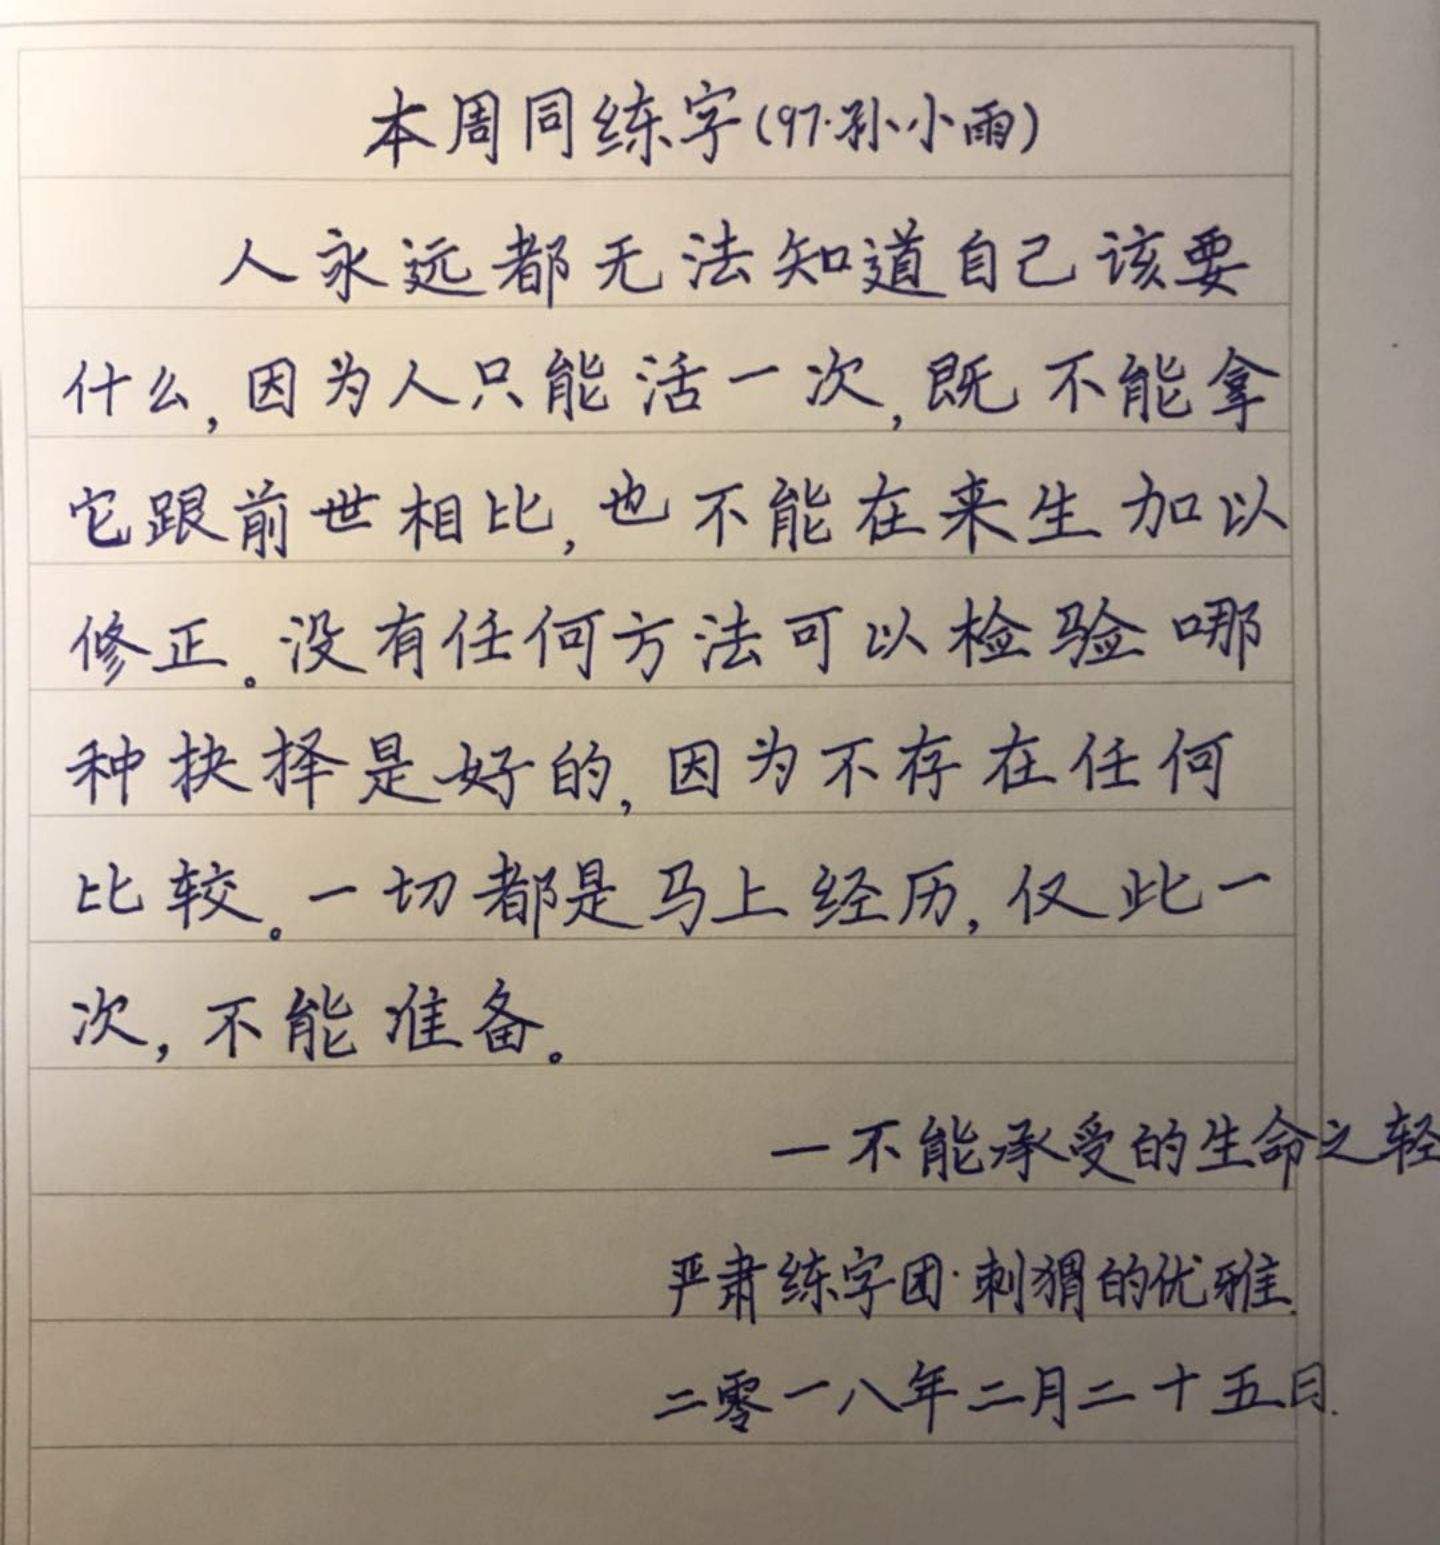 本周同练字(97·孙小雨)
人永远都无法知道自己该要
什么,因为人只能活一次,既不能拿
它跟前世相比,也不能在来生加以
修正。没有任何方法可以检验哪
种抉择是好的,因为不存在任何
比较。一切都是马上经历,仅此一
次,不能准备。
—不能承受的生命之轻
严肃练字团·刺猬的优雅.
二零一八年二月二十五日.